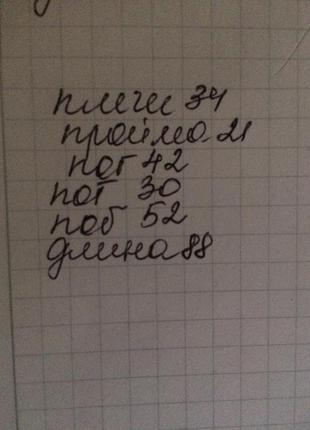 плечи 34
пройма 21
пог 42
пот 30
поб 52
длина 88